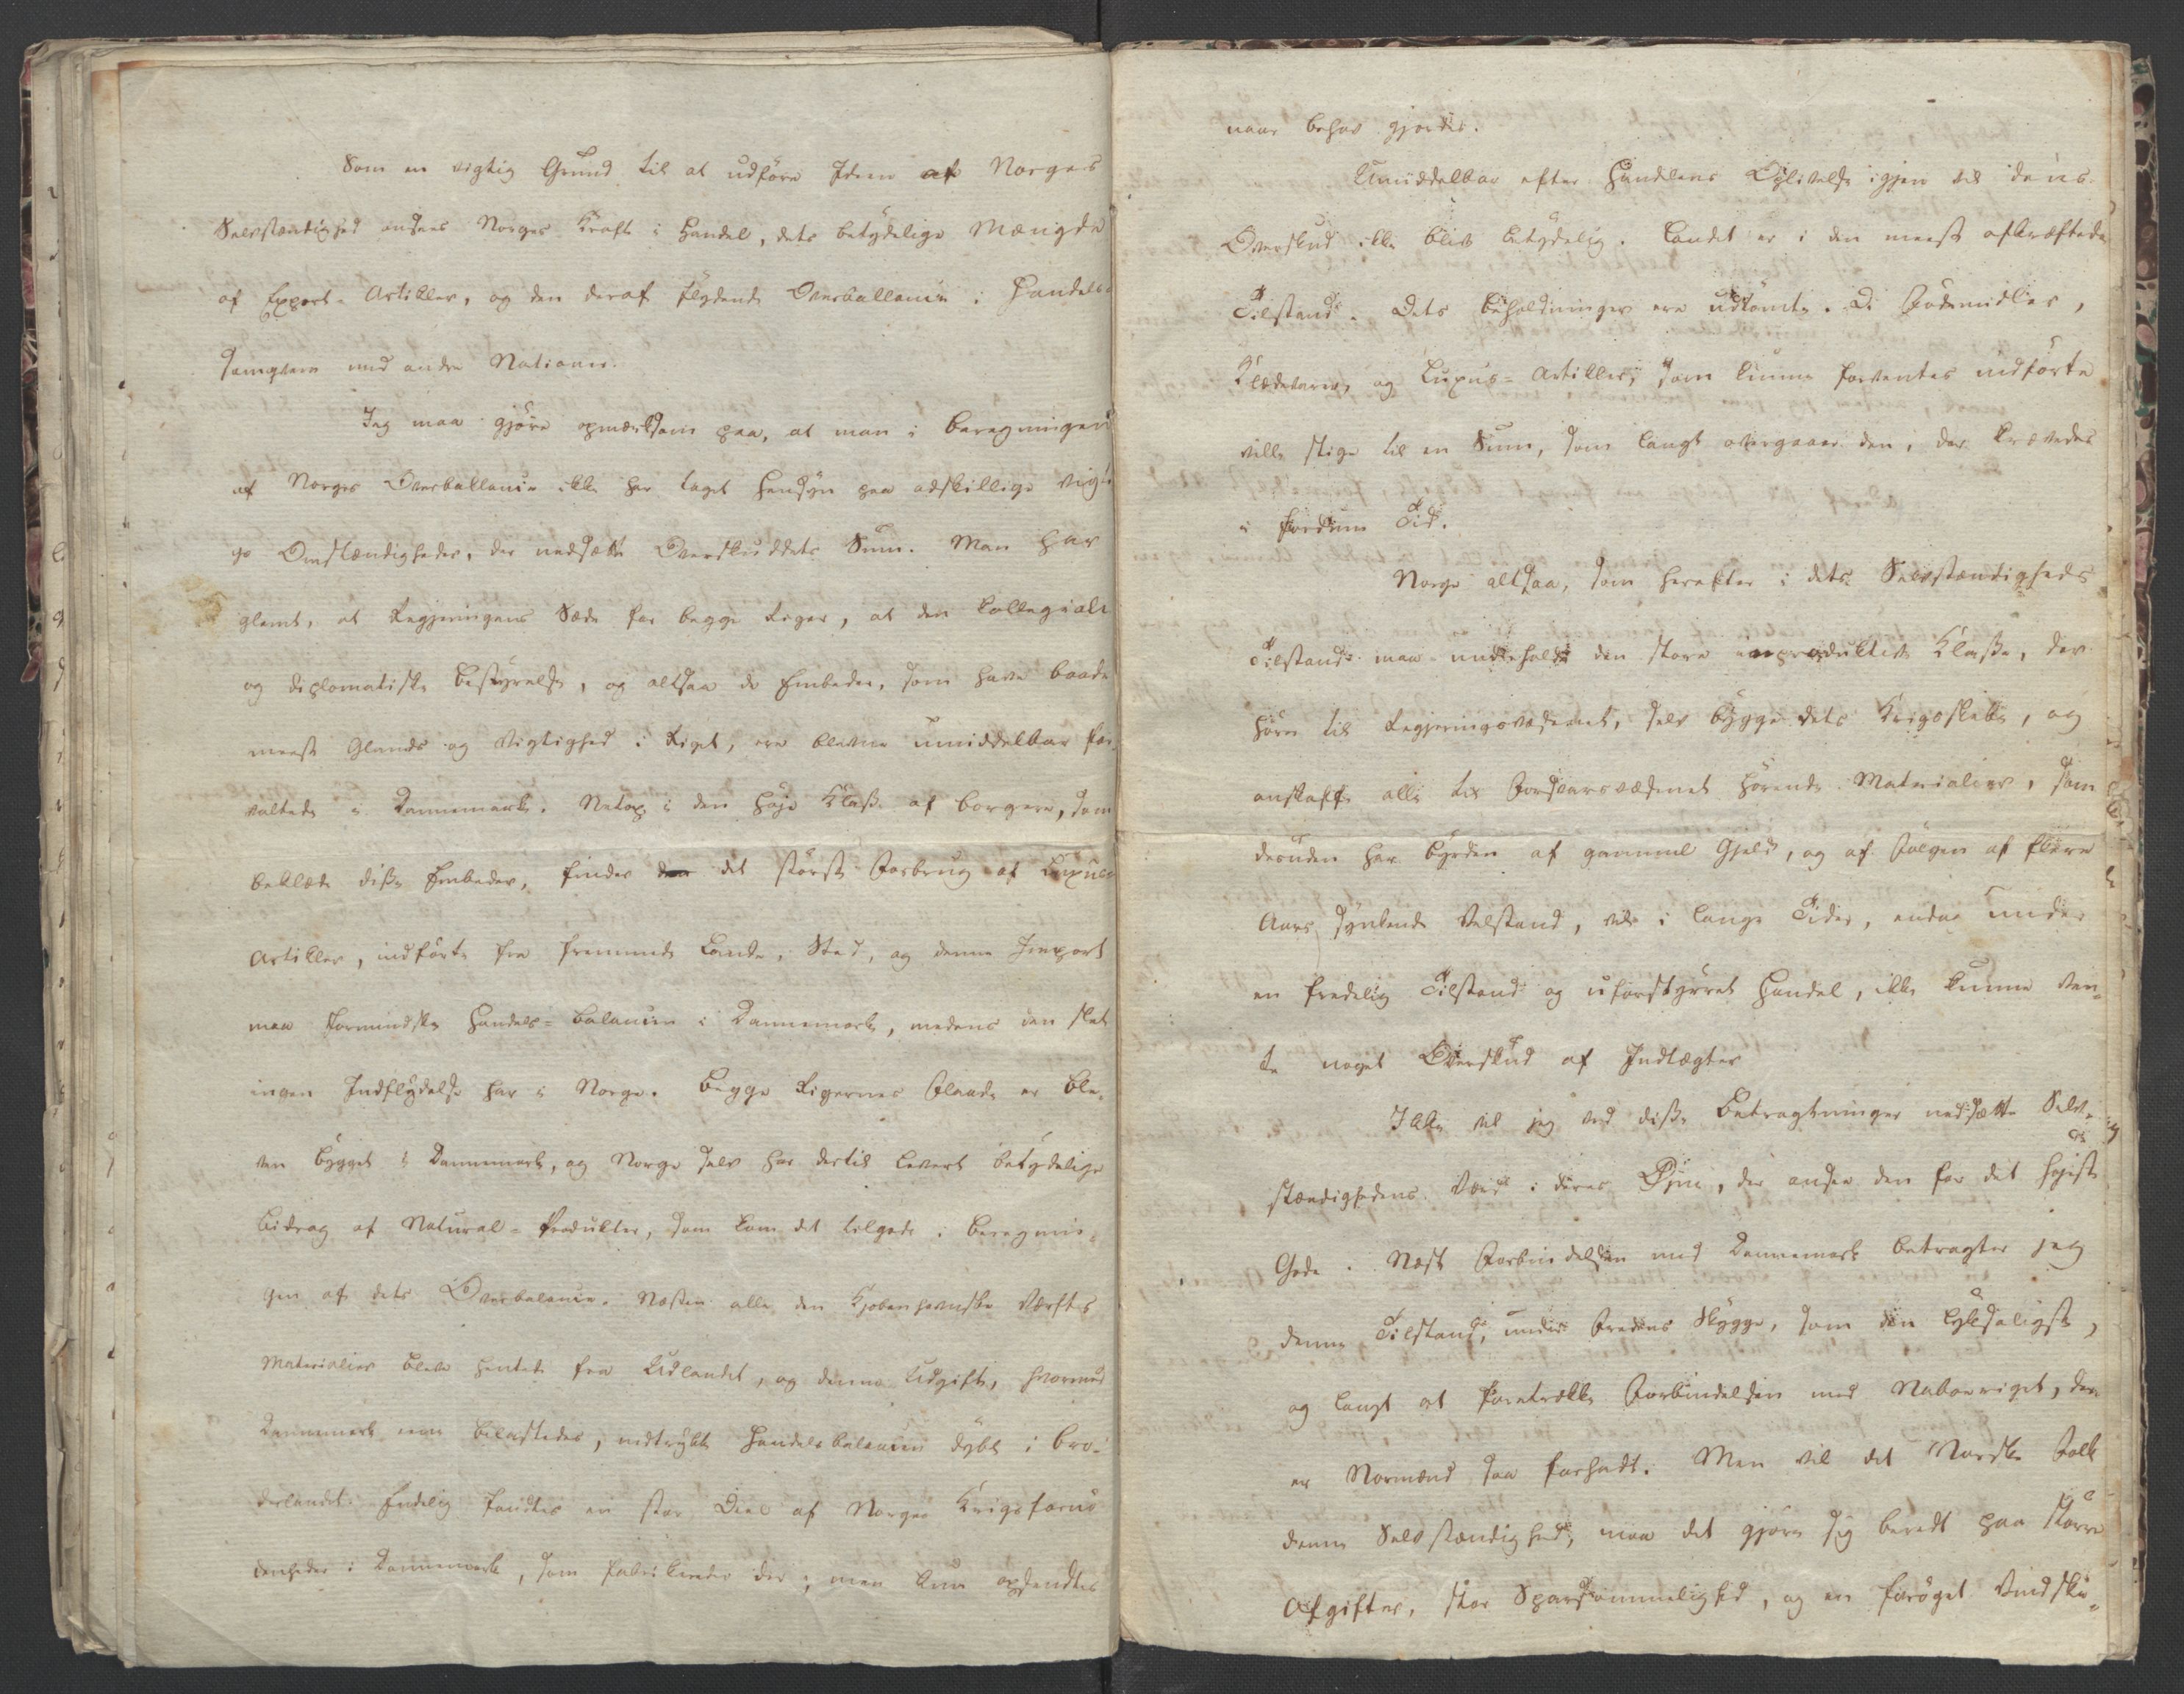 Som en vigtig Grund til at udføre Ideen af Norges
Selvstændighed ansees Norges Kraft i Handel, dets betydelige Mængde
af Export-Artikler, og den deraf flydende Overballance i Handels-
samqvem med andre Nationer.
Jeg maa gjøre opmærksom paa, at man i Beregningen
af Norges Overballance ikke har taget Hensyn paa adskillige vigti
ge Omstændigheder, der nedsætte Overskuddets Sum. Man har
glemt, at Regjeringens Sæde for begge Riger, at den Collegiale
og diplomatiske Bestyrelse, og altsaa de Embeder, som have baade
meest Glands og Vigtighed i Riget, ere blevne umiddelbar for-
valtede i Dannemark. Netop i den høje Klasse af Borgere, som
beklæde disse Embeder, finder det største Forbrug af Luxus
Artikler, indførte fra fremmede Lande, Sted, og denne Import
maa formindske Handels-Balancen i Dannemark, medens den slet
ingen Indflydelse har i Norge. Begge Rigernes Flaade er ble-
ven bygget i Dannemark, og Norge selv har dertil levert betydelige
Bidrag af Natural-Produkter, som kom det tilgode i Beregnin-
gen af dets Overbalance. Næsten alle den Kjøbenhavnske Værfts
Materialier bleve hentede fra Udlandet, og denne Udgift, hvormed
Dannemark ene belastedes, nedtrykte Handelsbalancen dybt i Bro-
derlandet. Endelig fandtes en stor Deel af Norges Krigsfornø
denheder i Dannemark, som fabrikeredes der, men kun opsendtes
naar Behov gjordes.
Umiddelbar efter Handlens Oplivelse igjen vil dens
Overskud ikke blive betydelig. Landet er i den meest afkræftede
Tilstand. Dets Beholdninger ere udtømte. De Fødemidler,
Klædevarer, og Luxus-Artikler, som kunne forventes indførte
ville stige til en Sum, som langt overgaaer den, der krævedes
i fordum Tid.
Norge altsaa, som herefter i dets Selvstændigheds
Tilstand maa underholde den store improduktive Klasse, der
hører til Regjeringsvæsenet, selv bygge dets Krigsskibe, og
anskaffe alle til Forsvarsvæsenet hørende Materialier, som
desuden har Byrden af gammel Gjeld, og af Følgen af flere
Aars synkende Velstand, vil i lange Tider, endnu under
en fredelig Tilstand og uforstyrret Handel, ikke kunne ven-
te noget Overskud af Indtægter
Ikke vil jeg ved disse Betragtninger nedsætte Selv-
stændighedens Værd i deres Øjne, der ansee den for det højeste
Gode. Næst Forbindelsen med Dannemark betragter jeg
denne Tilstand, under Fredens Skygge, som den lyksaligste,
og langt at foretrække Forbindelsen med Naboeriget, der
er Normænd saa forhadt. Men vil det Norske Folk
denne Selvstændighed, maa det gjøre sig beredt paa større
Afgifter, stor Sparsommelighed, og en forøget Vindski-